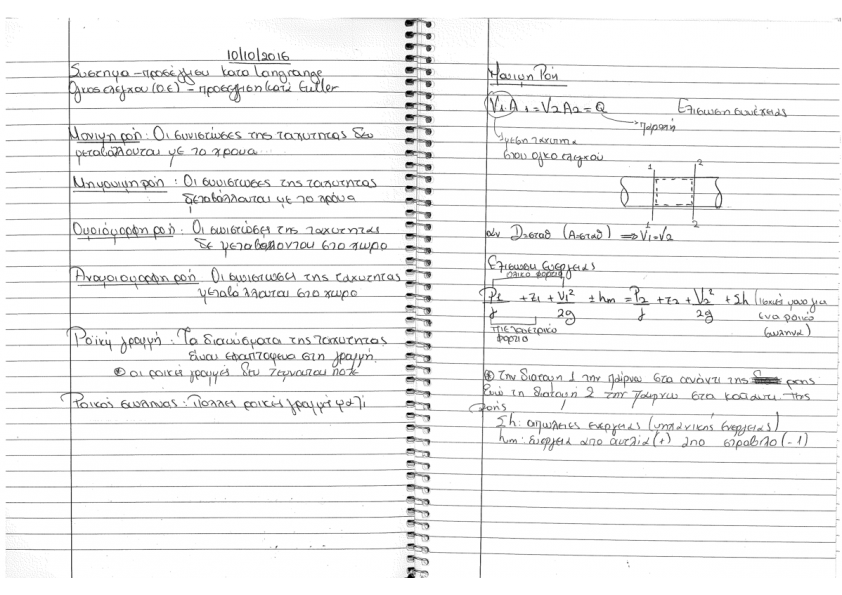 10/10/2016
Συστημα - προσέγγιση κατα Langrange
Ογκος ελεγχου (Ο.Ε) - προσεγγιση κατα Euller
Μονιμη ροή : Οι συνιστώσες της ταχυτητας δεν
μεταβάλλονται με το χρονο
Μη μονιμη ροή : Οι συνιστωσες της ταχυτητας
μεταβάλλονται με το χρόνο
Ομοιόμορφη ροή : Οι συνιστώσες της ταχυτητας
δε μεταβαλλονται στο χωρο
Ανομοιομορφη ροή Οι συνιστωσες της ταχυτητας
μεταβαλλονται στο χωρο
Ροϊκή γραμμή : Τα διανύσματα της ταχυτητας
ειναι εφαπτομενα στη γραμμή.
οι ροικες γραμμές δεν τεμνονται ποτέ
Ροικός σωληνας : Πολλες ροικές γραμμές μαζι
Μονιμη Ροή
V₁A₁ = V₂A₂ = Q Εξισωση συνέχειας
παροχή
μεση ταχυτητα
στον ογκο ελεγχου
1 2
1 2
αν D=σταθ (A=σταθ) ⟹ V₁=V₂
Εξισωση Ενεργειας
ολικο φορτιο
P₁/γ + z₁ + V₁²/2g ± hm = P₂/γ + z₂ + V₂²/2g + Σh (ισχυει μονο για
ενα ροικό
σωληνα)
πιεζομετρικό
φορτιο
⊛ Την διατομη 1 την παίρνω στα ανάντι της ροης
Ενώ τη διατομη 2 την παιρνω στα καταντι της
ροής
Σh : απωλειες ενεργειας (μηχανικής ενεργειας)
hm : Ενεργεια απο αντλία (+) απο στροβιλο (-1)